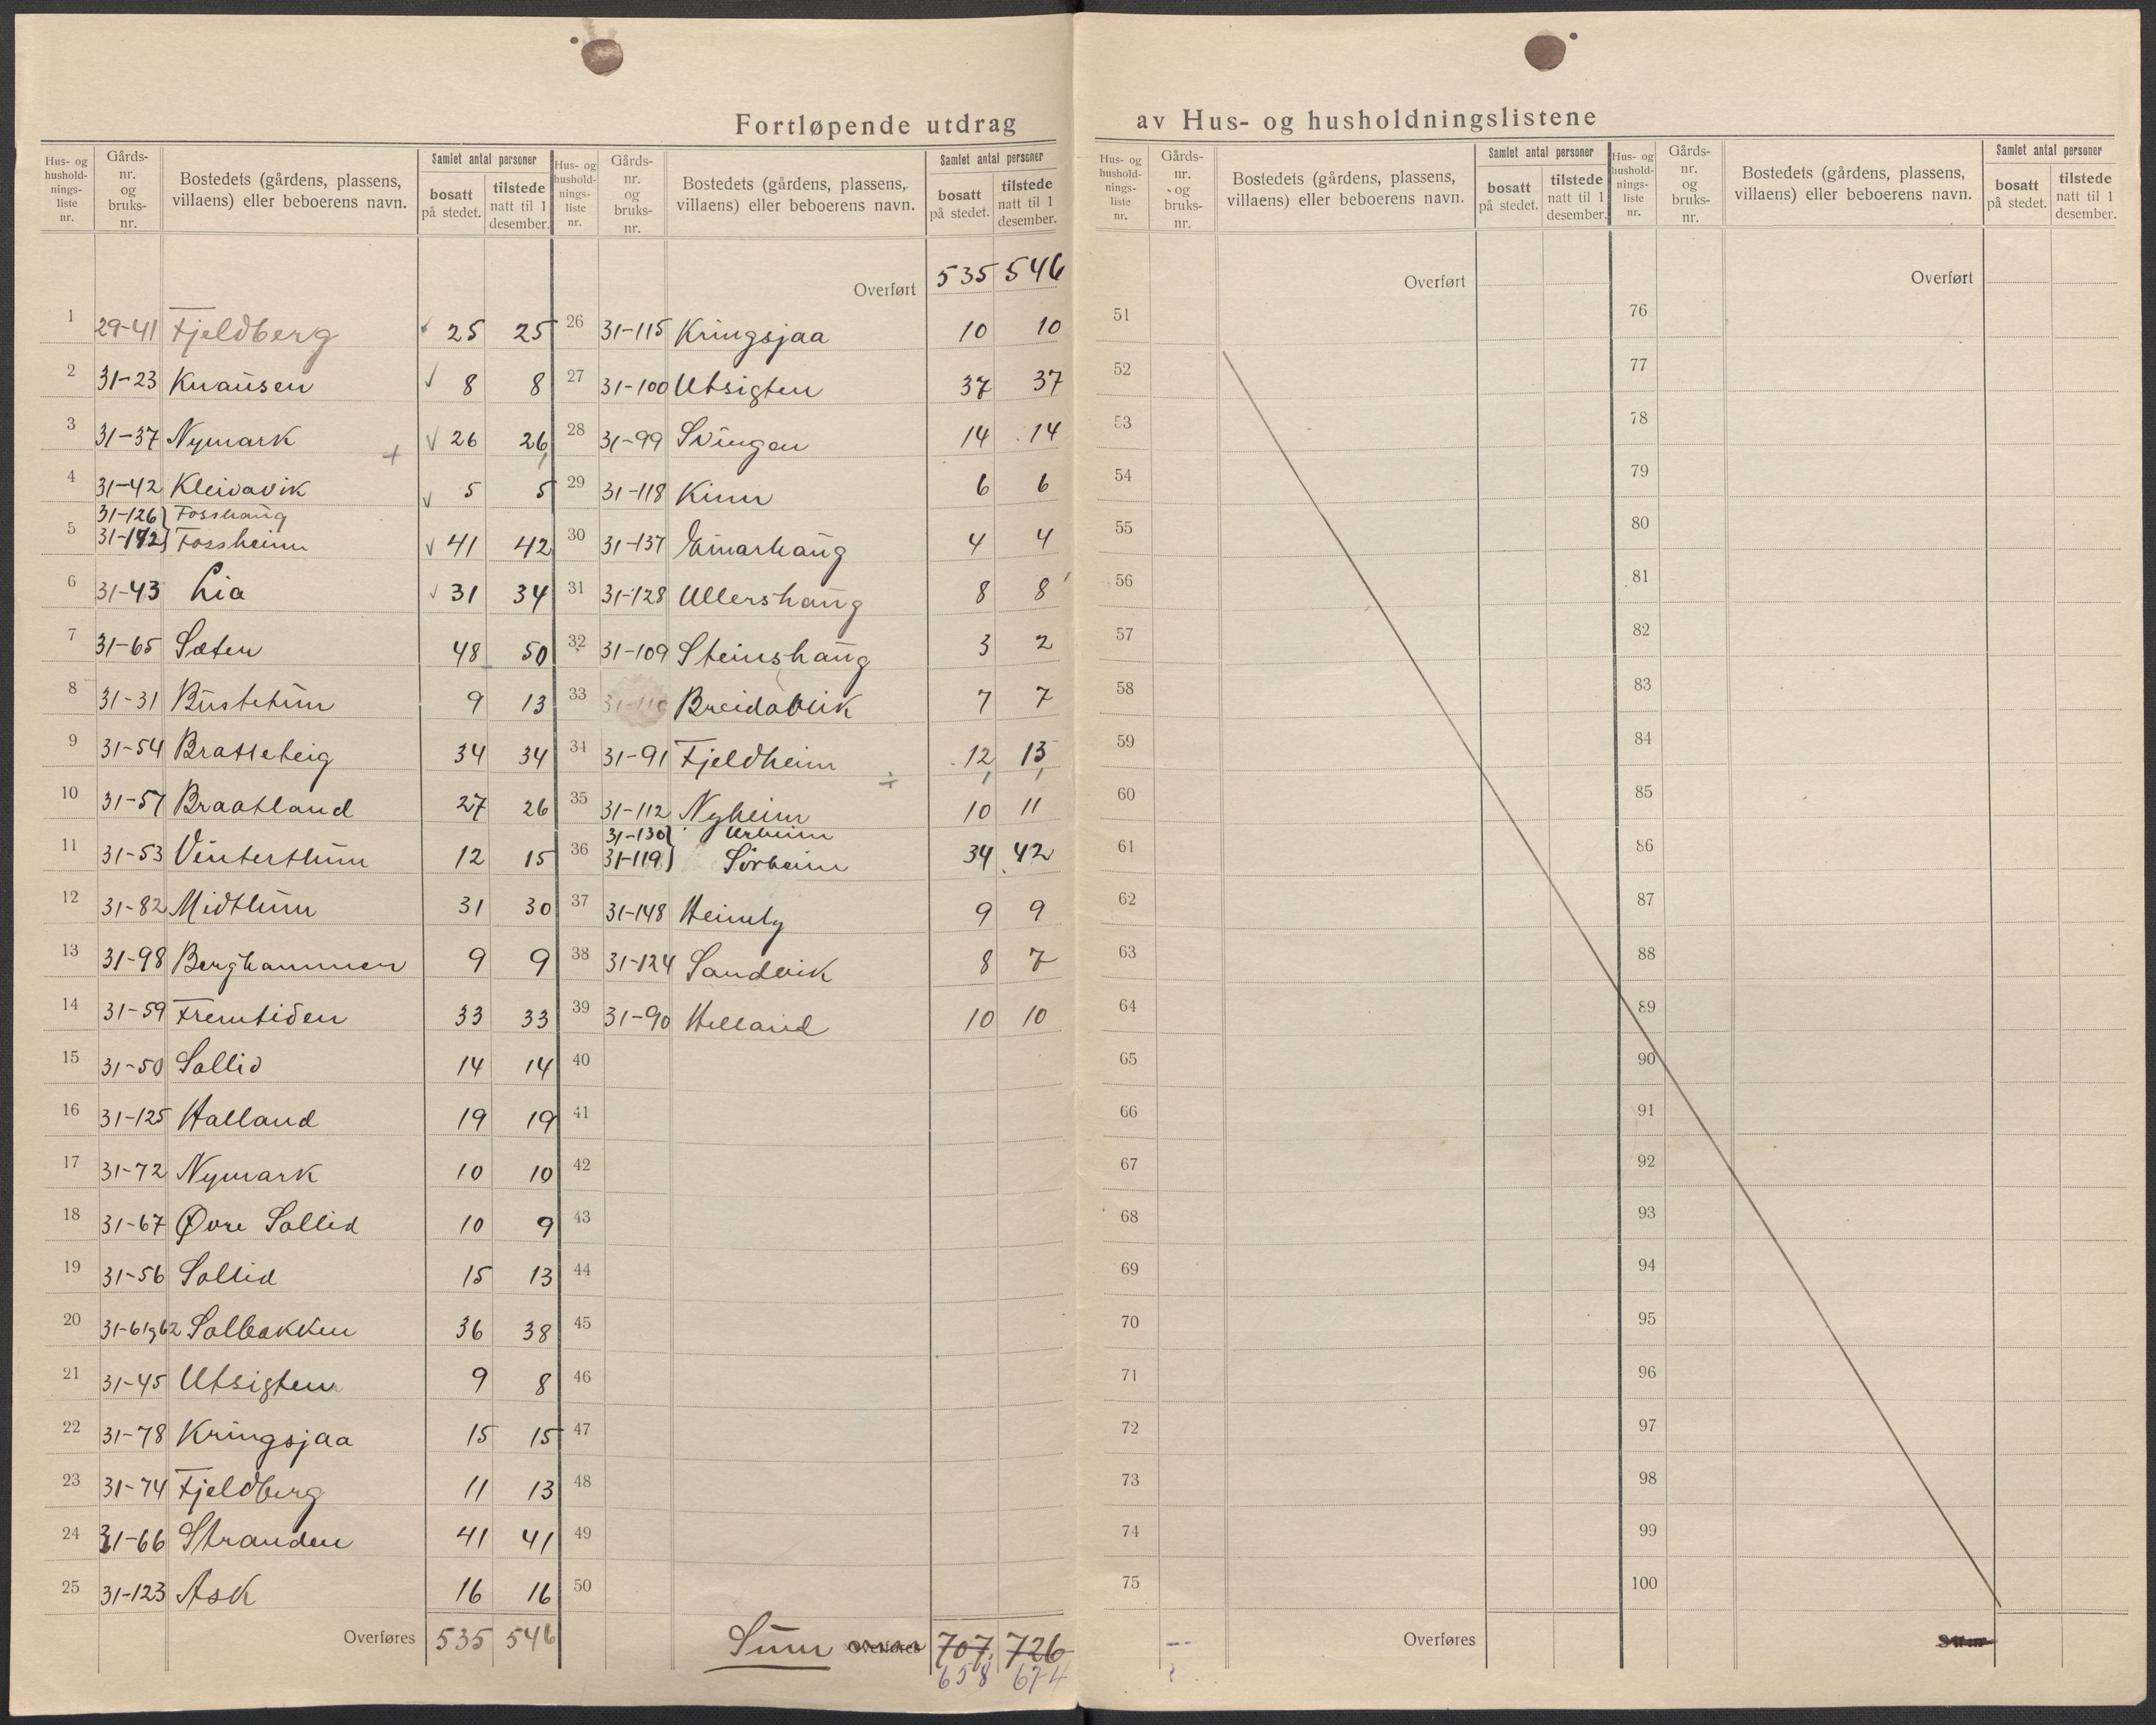 Fortløpende utdrag av Hus- og husholdningslistene
Hus- og husholdnings-liste nr. | Gårds-nr. og bruks-nr. | Bostedets (gårdens, plassens, villaens) eller beboerens navn. | Samlet antal personer | bosatt på stedet. | tilstede natt til 1 desember.
1 29-41 Fjeldberg 25 25
2 31-23 Knausen 8 8
3 31-37 Nymark 26 26
4 31-42 Kleivavik 5 5
31-126 Fosshaug
5 31-142 Fossheim 41 42
6 31-43 Lia 31 34
7 31-65 Sæten 48 50
8 31-31 Bustetun 9 13
9 31-54 Bratteteig 34 34
10 31-57 Braatland 27 26
11 31-53 Vintertun 12 15
12 31-82 Midttun 31 30
13 31-98 Berghammer 9 9
14 31-59 Fremtiden 33 33
15 31-50 Sollid 14 14
16 31-125 Halland 19 19
17 31-72 Nymark 10 10
18 31-67 Øvre Sollid 10 9
19 31-56 Sollid 15 13
20 31-61 og 62 Solbakken 36 38
21 31-45 Utsigten 9 8
22 31-78 Kringsjaa 15 15
23 31-74 Fjeldberg 11 13
24 31-66 Stranden 41 41
25 31-123 Ask 16 16
Overføres 535 546
Hus- og husholdnings-liste nr. | Gårds-nr. og bruks-nr. | Bostedets (gårdens, plassens, villaens) eller beboerens navn. | Samlet antal personer | bosatt på stedet. | tilstede natt til 1 desember.
Overført 535 546
26 31-115 Kringsjaa 10 10
27 31-100 Utsigten 37 37
28 31-99 Svingen 14 14
29 31-118 Kinn 6 6
30 31-137 Einarhaug 4 4
31 31-128 Ullershaug 8 8
32 31-109 Steinshaug 3 2
33 31-110 Breidablik 7 7
34 31-91 Fjeldheim 12 13
35 31-112 Nyheim 10 11
31-130 Urheim
36 31-119 Sørheim 34 42
37 31-148 Heimly 9 9
38 31-124 Sandvik 8 7
39 31-90 Helland 10 10
40
41
42
43
44
45
46
47
48
49
50
Sum Overføres 707 726
658 674
Hus- og husholdnings-liste nr. | Gårds-nr. og bruks-nr. | Bostedets (gårdens, plassens, villaens) eller beboerens navn. | Samlet antal personer | bosatt på stedet. | tilstede natt til 1 desember.
Overført
51
52
53
54
55
56
57
58
59
60
61
62
63
64
65
66
67
68
69
70
71
72
73
74
75
Overføres
Hus- og husholdnings-liste nr. | Gårds-nr. og bruks-nr. | Bostedets (gårdens, plassens, villaens) eller beboerens navn. | Samlet antal personer | bosatt på stedet. | tilstede natt til 1 desember.
Overført
76
77
78
79
80
81
82
83
84
85
86
87
88
89
90
91
92
93
94
95
96
97
98
99
100
Sum